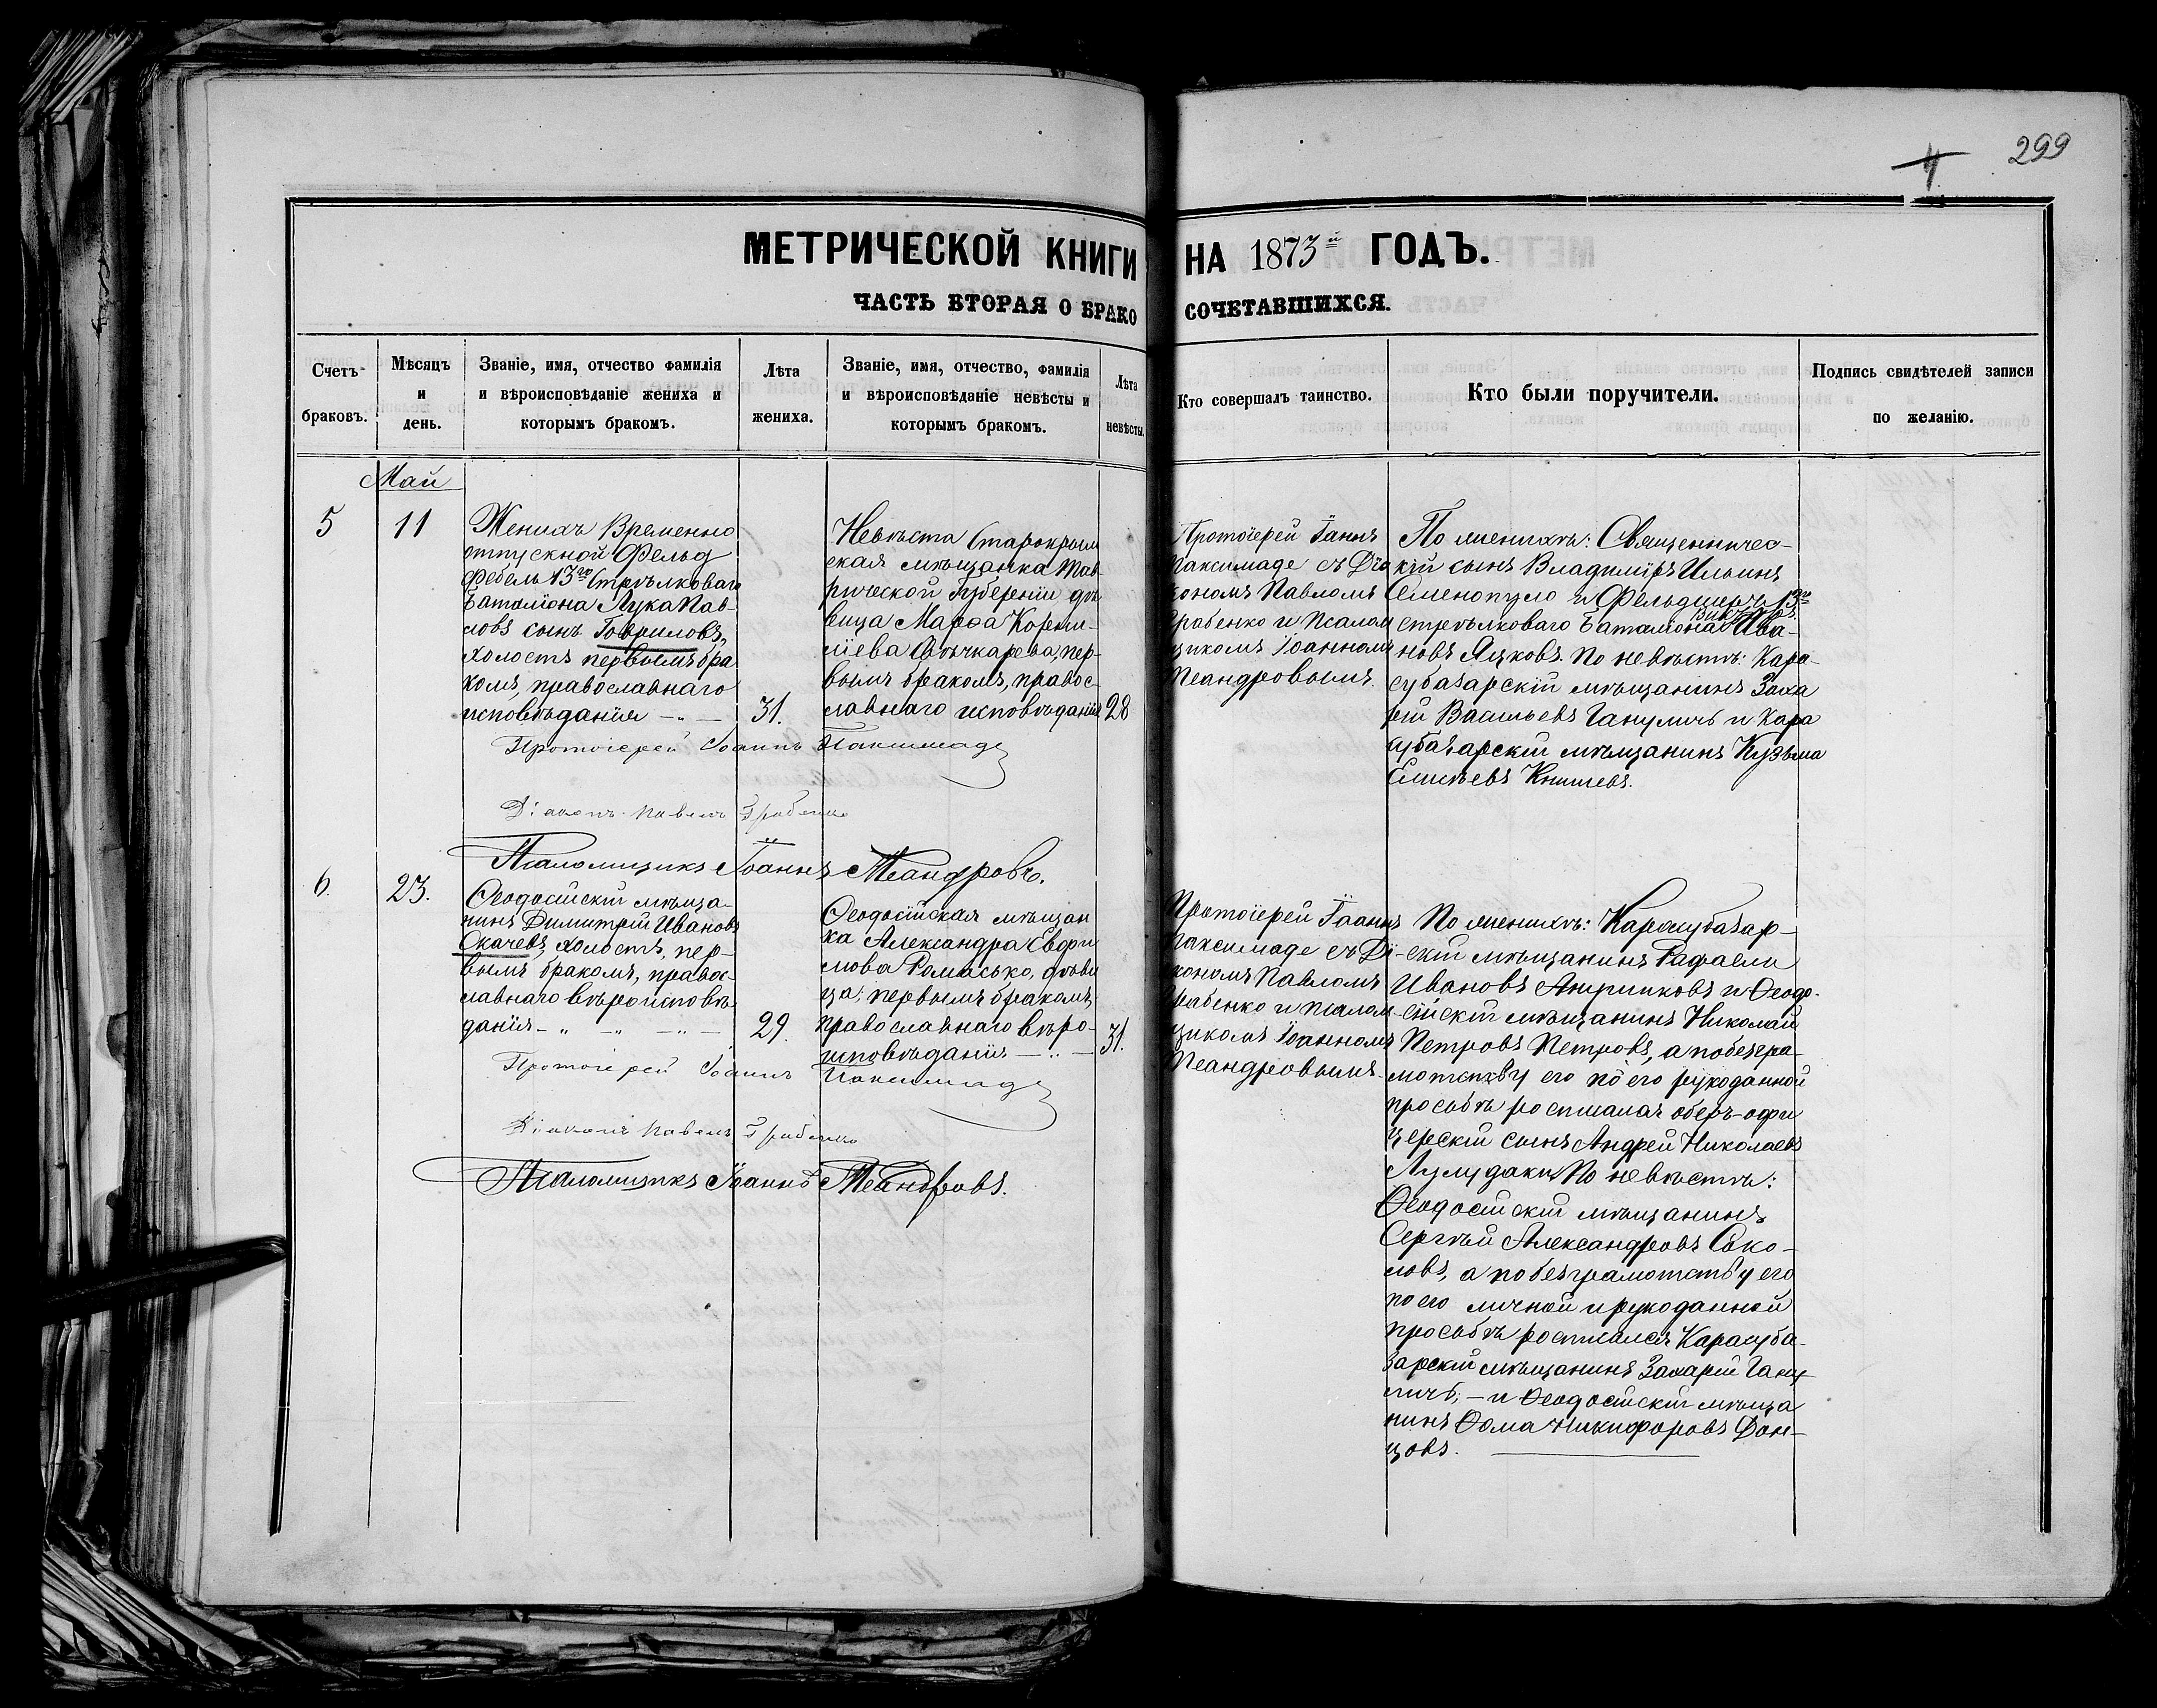 4 299
МЕТРИЧЕСКОЙ КНИГИ НА 1873й ГОДЪ.
ЧАСТЬ ВТОРАЯ О БРАКО СОЧЕТАВШИХСЯ.
Счетъ
браковъ.
Мѣсяцъ
и
день.
Званіе, имя, отчество фамилія
и вѣроисповѣданіе жениха и
которымъ бракомъ.
Лѣта
жениха.
Званіе, имя, отчество, фамилія
и вѣроисповѣданіе невѣсты и
которымъ бракомъ.
Лѣта
невѣсты.
Кто совершалъ таинство.
Кто были поручители.
Подпись свидѣтелей записи
по желанію.
Май
5
11
Женихъ Временно
отпускной Фельд
фебель 13го Стрѣлковаго
баталіона Лука Пав-
ловъ сынъ Гавриловъ,
холостъ первымъ бра
комъ, православнаго
исповѣданія
31.
Невѣста Старокрым
ская мѣщанка Тав-
рической Губерніи дѣ
вица Марѳа Корни-
ліева Свѣчкарева, пер-
вымъ бракомъ, правос-
лавнаго исповѣданія
28
Протоіерей Іоаннъ
Паксимаде съ Діа
кономъ Павломъ
Грабенко и Псалом
щикомъ Іоанномъ
Меандровымъ
По женихѣ: Священничес-
кій сынъ Владиміръ Ильинъ
Семенопуло и Фельдшеръ 13го
стрѣлковаго баталіона Ива-
новъ Яцковъ. По невѣстѣ: Кара-
субазарскій мѣщанинъ Заха
рій Васильевъ Гануличъ и Кара
субазарскій мѣщанинъ Кузьма
Елисѣевъ Книшевъ.
Протоіерей Іоаннъ Паксимаде
Діаконъ Павелъ Грабенко
Псаломщикъ Іоаннъ Меандровъ.
6.
23.
Ѳеодосійскій мѣща-
нинъ Димитрій Ивановъ
Скачевъ, холостъ, пер-
вымъ бракомъ, правос-
лавнаго вѣроисповѣ
данія
29.
Ѳеодосійская мѣщан
ка Александра Евфи
мова Ромасько, дѣви
ца, первымъ бракомъ,
православнаго вѣро-
исповѣданія
31.
Протоіерей Іоаннъ
Паксимаде съ Ді-
кономъ Павломъ
Грабенко и псалом
щикомъ Іоанномъ
Меандровымъ.
По женихѣ: Карасубазар-
скій мѣщанинъ Рафаелъ
Ивановъ и Ѳеодо-
сійскій мѣщанинъ Николай
Петровъ Петровъ, а по безгра-
мотству его по его рукоданной
просьбѣ росписался оберъ-офи
церскій сынъ Андрей Николаевъ
Лулудаки. По невѣстѣ:
Ѳеодосійскій мѣщанинъ
Сергѣй Александровъ Соко-
ловъ, а по безграмотству его
по его личной и рукоданной
просьбѣ росписался Карасуба-
зарскій мѣщанинъ Захарій Гану-
личъ; - и Ѳеодосійскій мѣща
нинъ Ѳома Никифоровъ Дон-
цовъ.
Протоіерей Іоаннъ Паксимаде
Діаконъ Павелъ Грабенко
Псаломщикъ Іоаннъ Меандровъ.